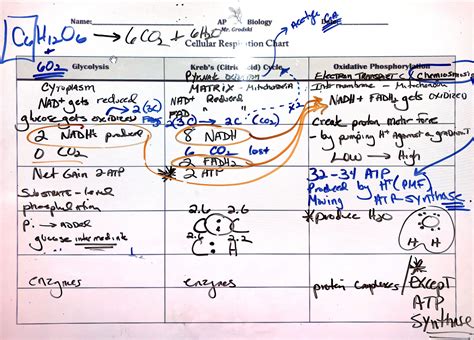 Name: AP Biology
Mr. Grodski
Cellular Respiration Chart
C6H12O6 → 6CO2 + 6H2O
+
6O2
Acetyl CoA
Glycolysis
Kreb's (Citric Acid) Cycle
Oxidative Phosphorylation
Pyruvate Oxidation
Electron Transport & Chemiosmosis
Cytoplasm
Matrix - Mitochondria
NAD+ gets reduced
→ 2(3C)
glucose gets oxidized
NAD+ Reduced
FAD
2(3C) → 2C (CO2)
x2
NADH + FADH2 gets oxidized
2 NADH produced
0 CO2
8 NADH
6 CO2 lost
2 FADH2
Create proton motive force
- by pumping H+ against a gradient
Low → High
Net Gain 2 ATP
Substrate-level
phosphorylation
Pi → ADDED
glucose intermediate
* 2 ATP
2.6 2.6
C C
2.6 H 2.2
32-34 ATP
Produced by H+ (PMF)
Moving ATP Synthase
*produce H2O
O
H H
enzymes
enzymes
protein complexes / *except
ATP
Synthase